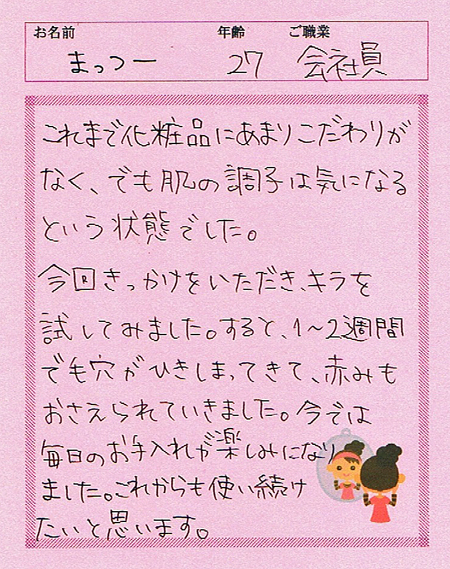 お名前 年齢 ご職業
まっつー 27 会社員
これまで化粧品にあまりこだわりが
なく、でも肌の調子は気になる
という状態でした。
今回きっかけをいただき、キラを
試してみました。すると、1〜2週間
で毛穴がひきしまってきて、赤みも
おさえられていきました。今では
毎日のお手入れが楽しみになり
ました。これからも使い続け
たいと思います。